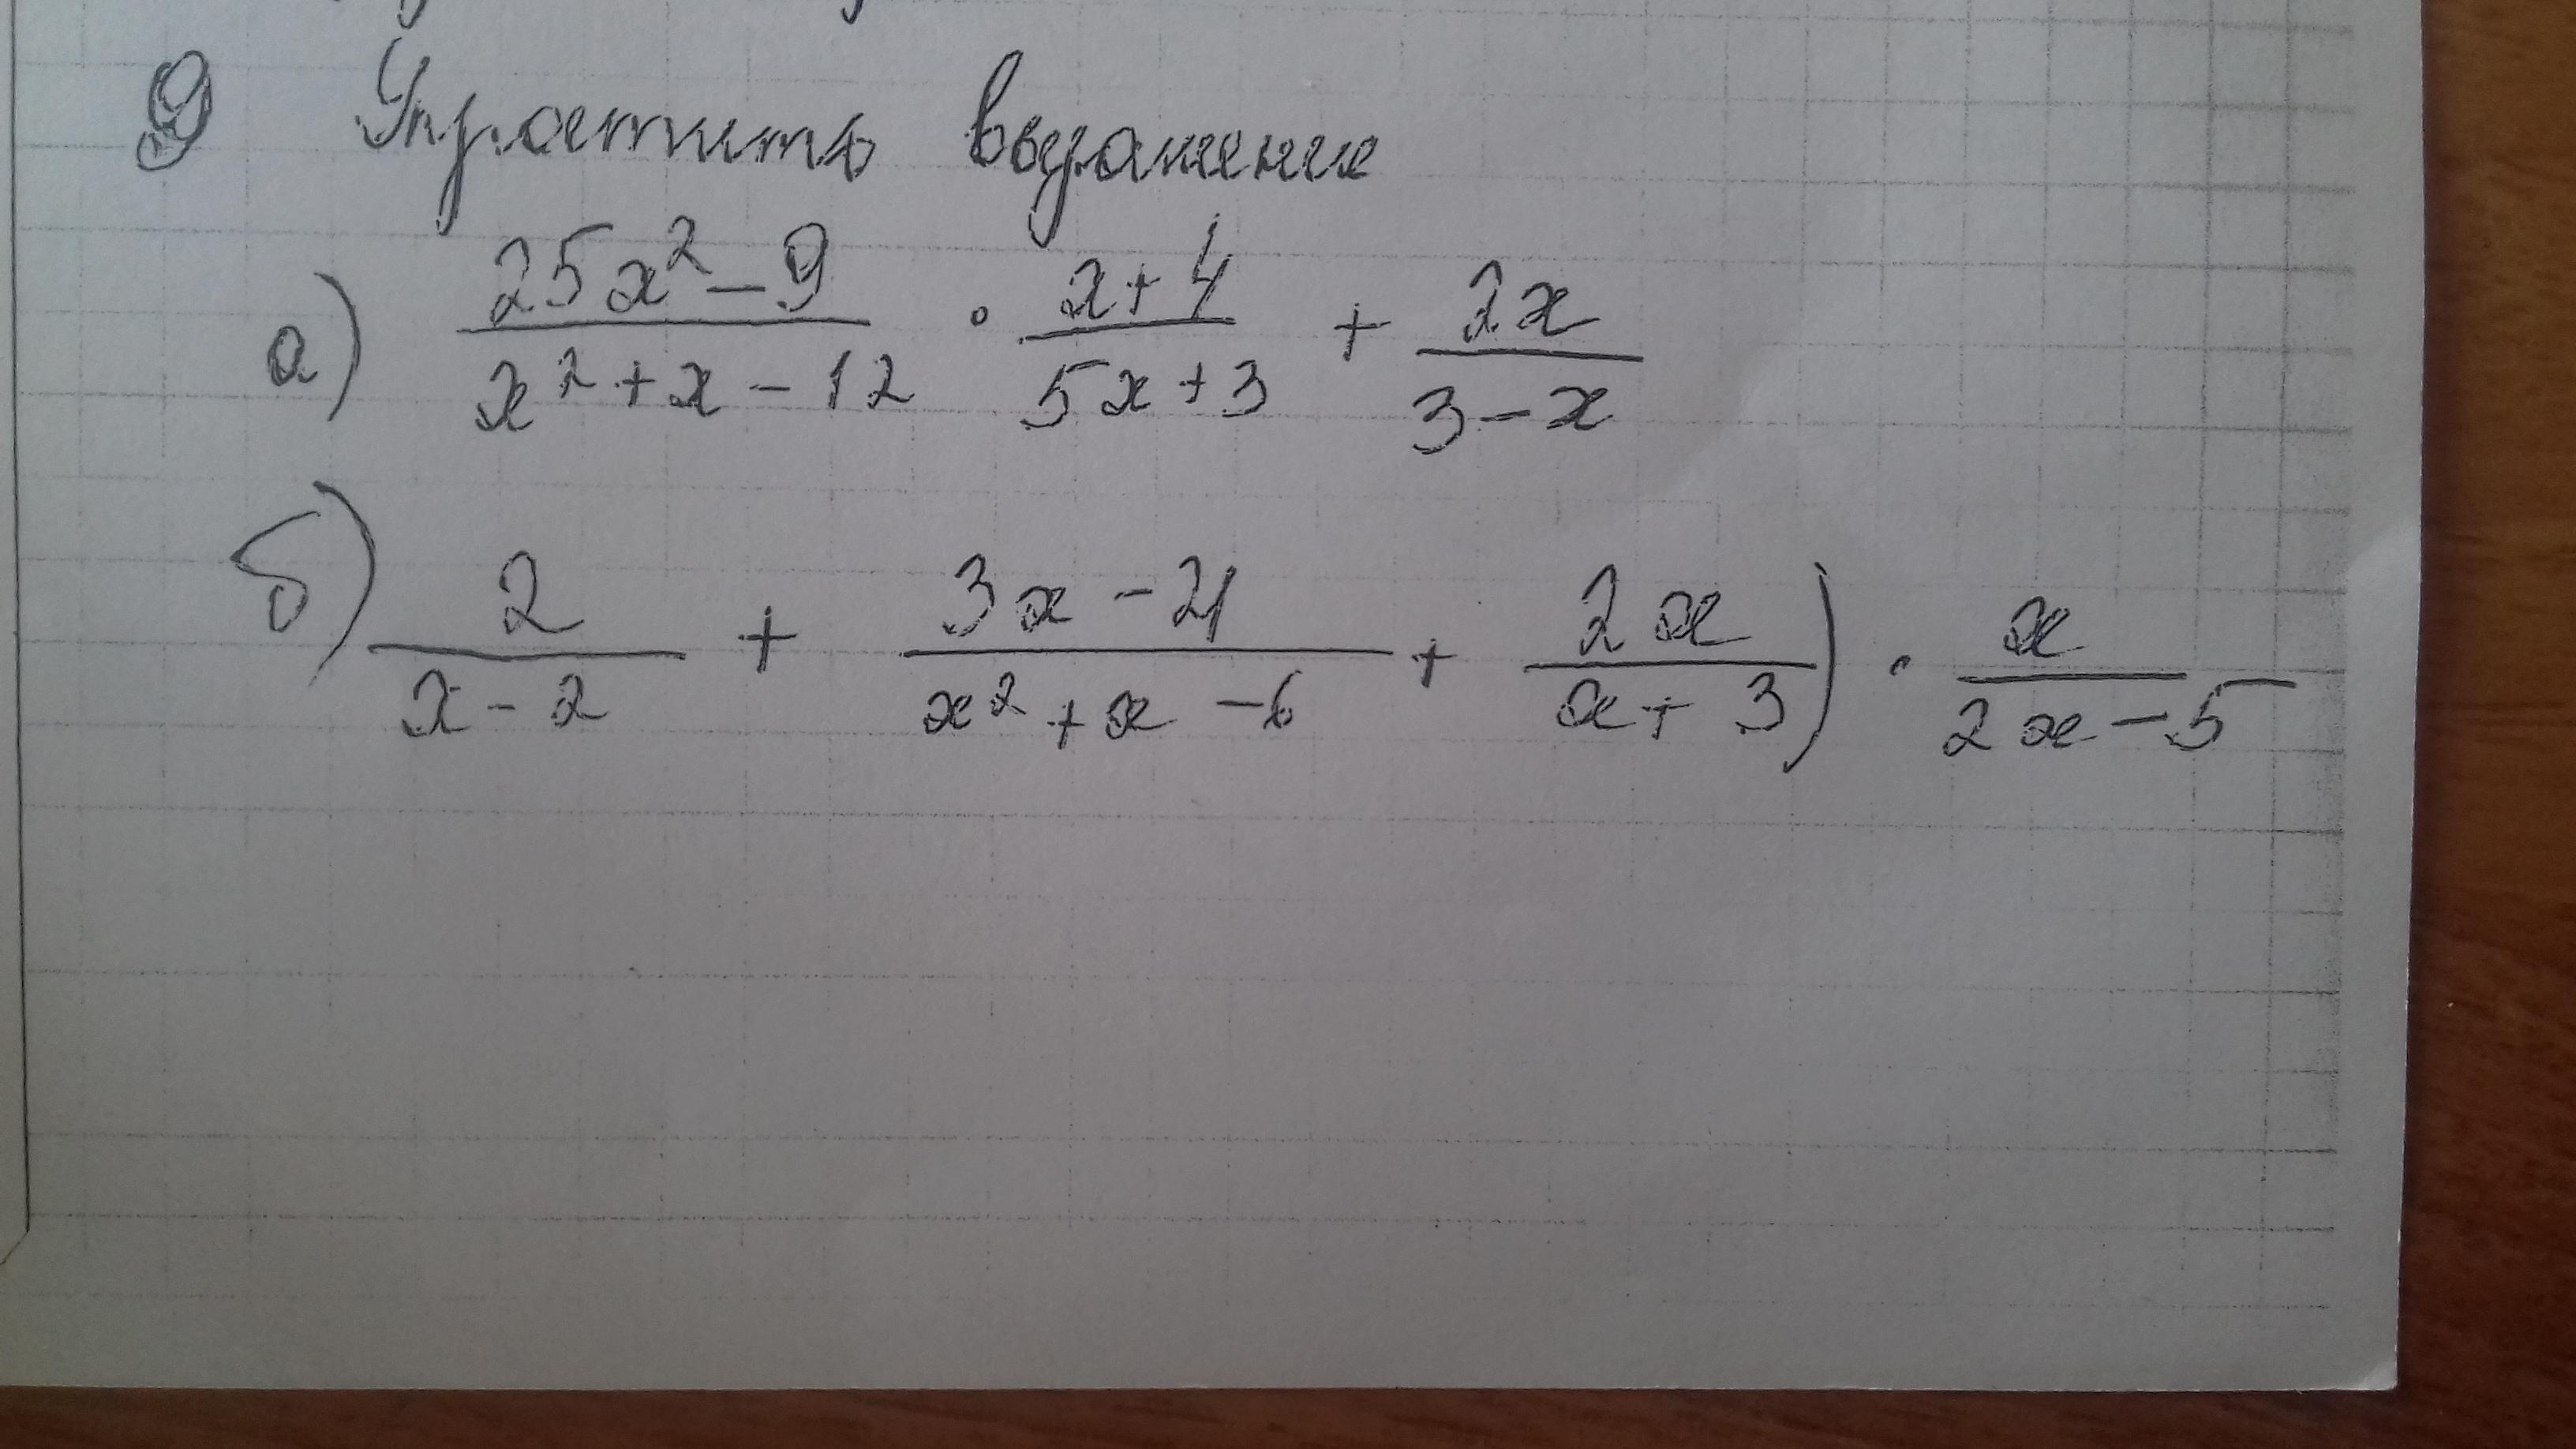 9 Упростить выражение
а) \frac{25x^2-9}{x^2+x-12} · \frac{x+4}{5x+3} + \frac{2x}{3-x}
б) \frac{2}{x-2} + \frac{3x-21}{x^2+x-6} + \frac{2x}{x+3}) · \frac{x}{2x-5}